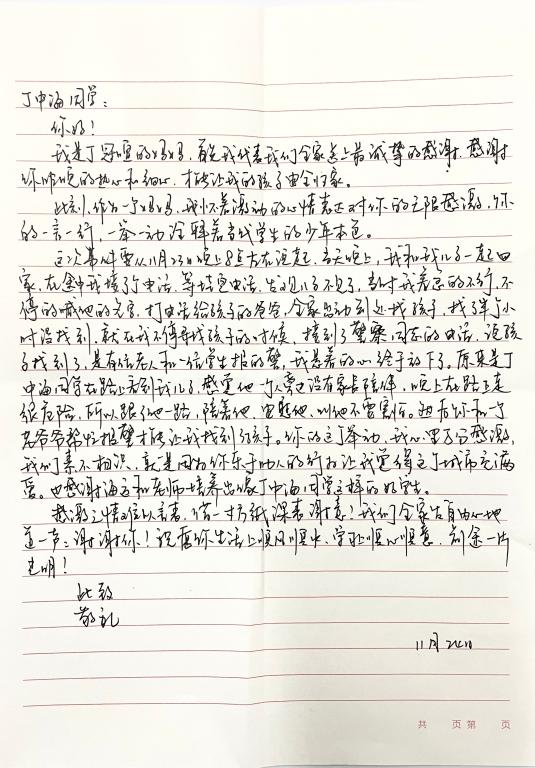 丁中海同学：
你好！
我是丁冠煊的妈妈，首先我代表我们全家送上最诚挚的感谢，感谢
你昨晚的热心和细心，才能让我的孩子安全归家。
此刻，作为一个妈妈，我怀着激动的心情表达对你的无限感激，你
的一言一行，一举一动诠释着当代学生的少年本色。
这次事件要从11月23日晚上8点左右说起，当天晚上，我和我儿子一起回
家，在途中我接了个电话，等接完电话，发现儿子不见了，当时我着急的不行，不
停的喊他的名字，打电话给孩子的爸爸，全家出动到处找孩子，找了半个小
时没找到，就在我不停寻找孩子的时候，接到了警察同志的电话，说孩
子找到了，是有位老人和一位学生报的警，我悬着的心终于放下了，原来是丁
中海同学在路上看到我儿子，感觉他一个人旁边没有家长陪伴，晚上在路上是
很危险，所以跟了他一路，陪着他，安慰他，叫他不要害怕。边后你和一个
老爷爷帮忙报警才能让我找到了孩子。你的这个举动，我心里万分感激，
我们素不相识，就是因为你乐于助人的行为让我觉得这个城市充满
爱。也感谢海五和老师培养出像丁中海同学这样的好学生。
感激之情难以言表，借一封信深表谢意！我们全家发自内心地
道一声：谢谢你！祝愿你生活上顺风顺水，学业顺心顺意，前途一片
光明！
此致
敬礼
11月24日
共 页 第 页